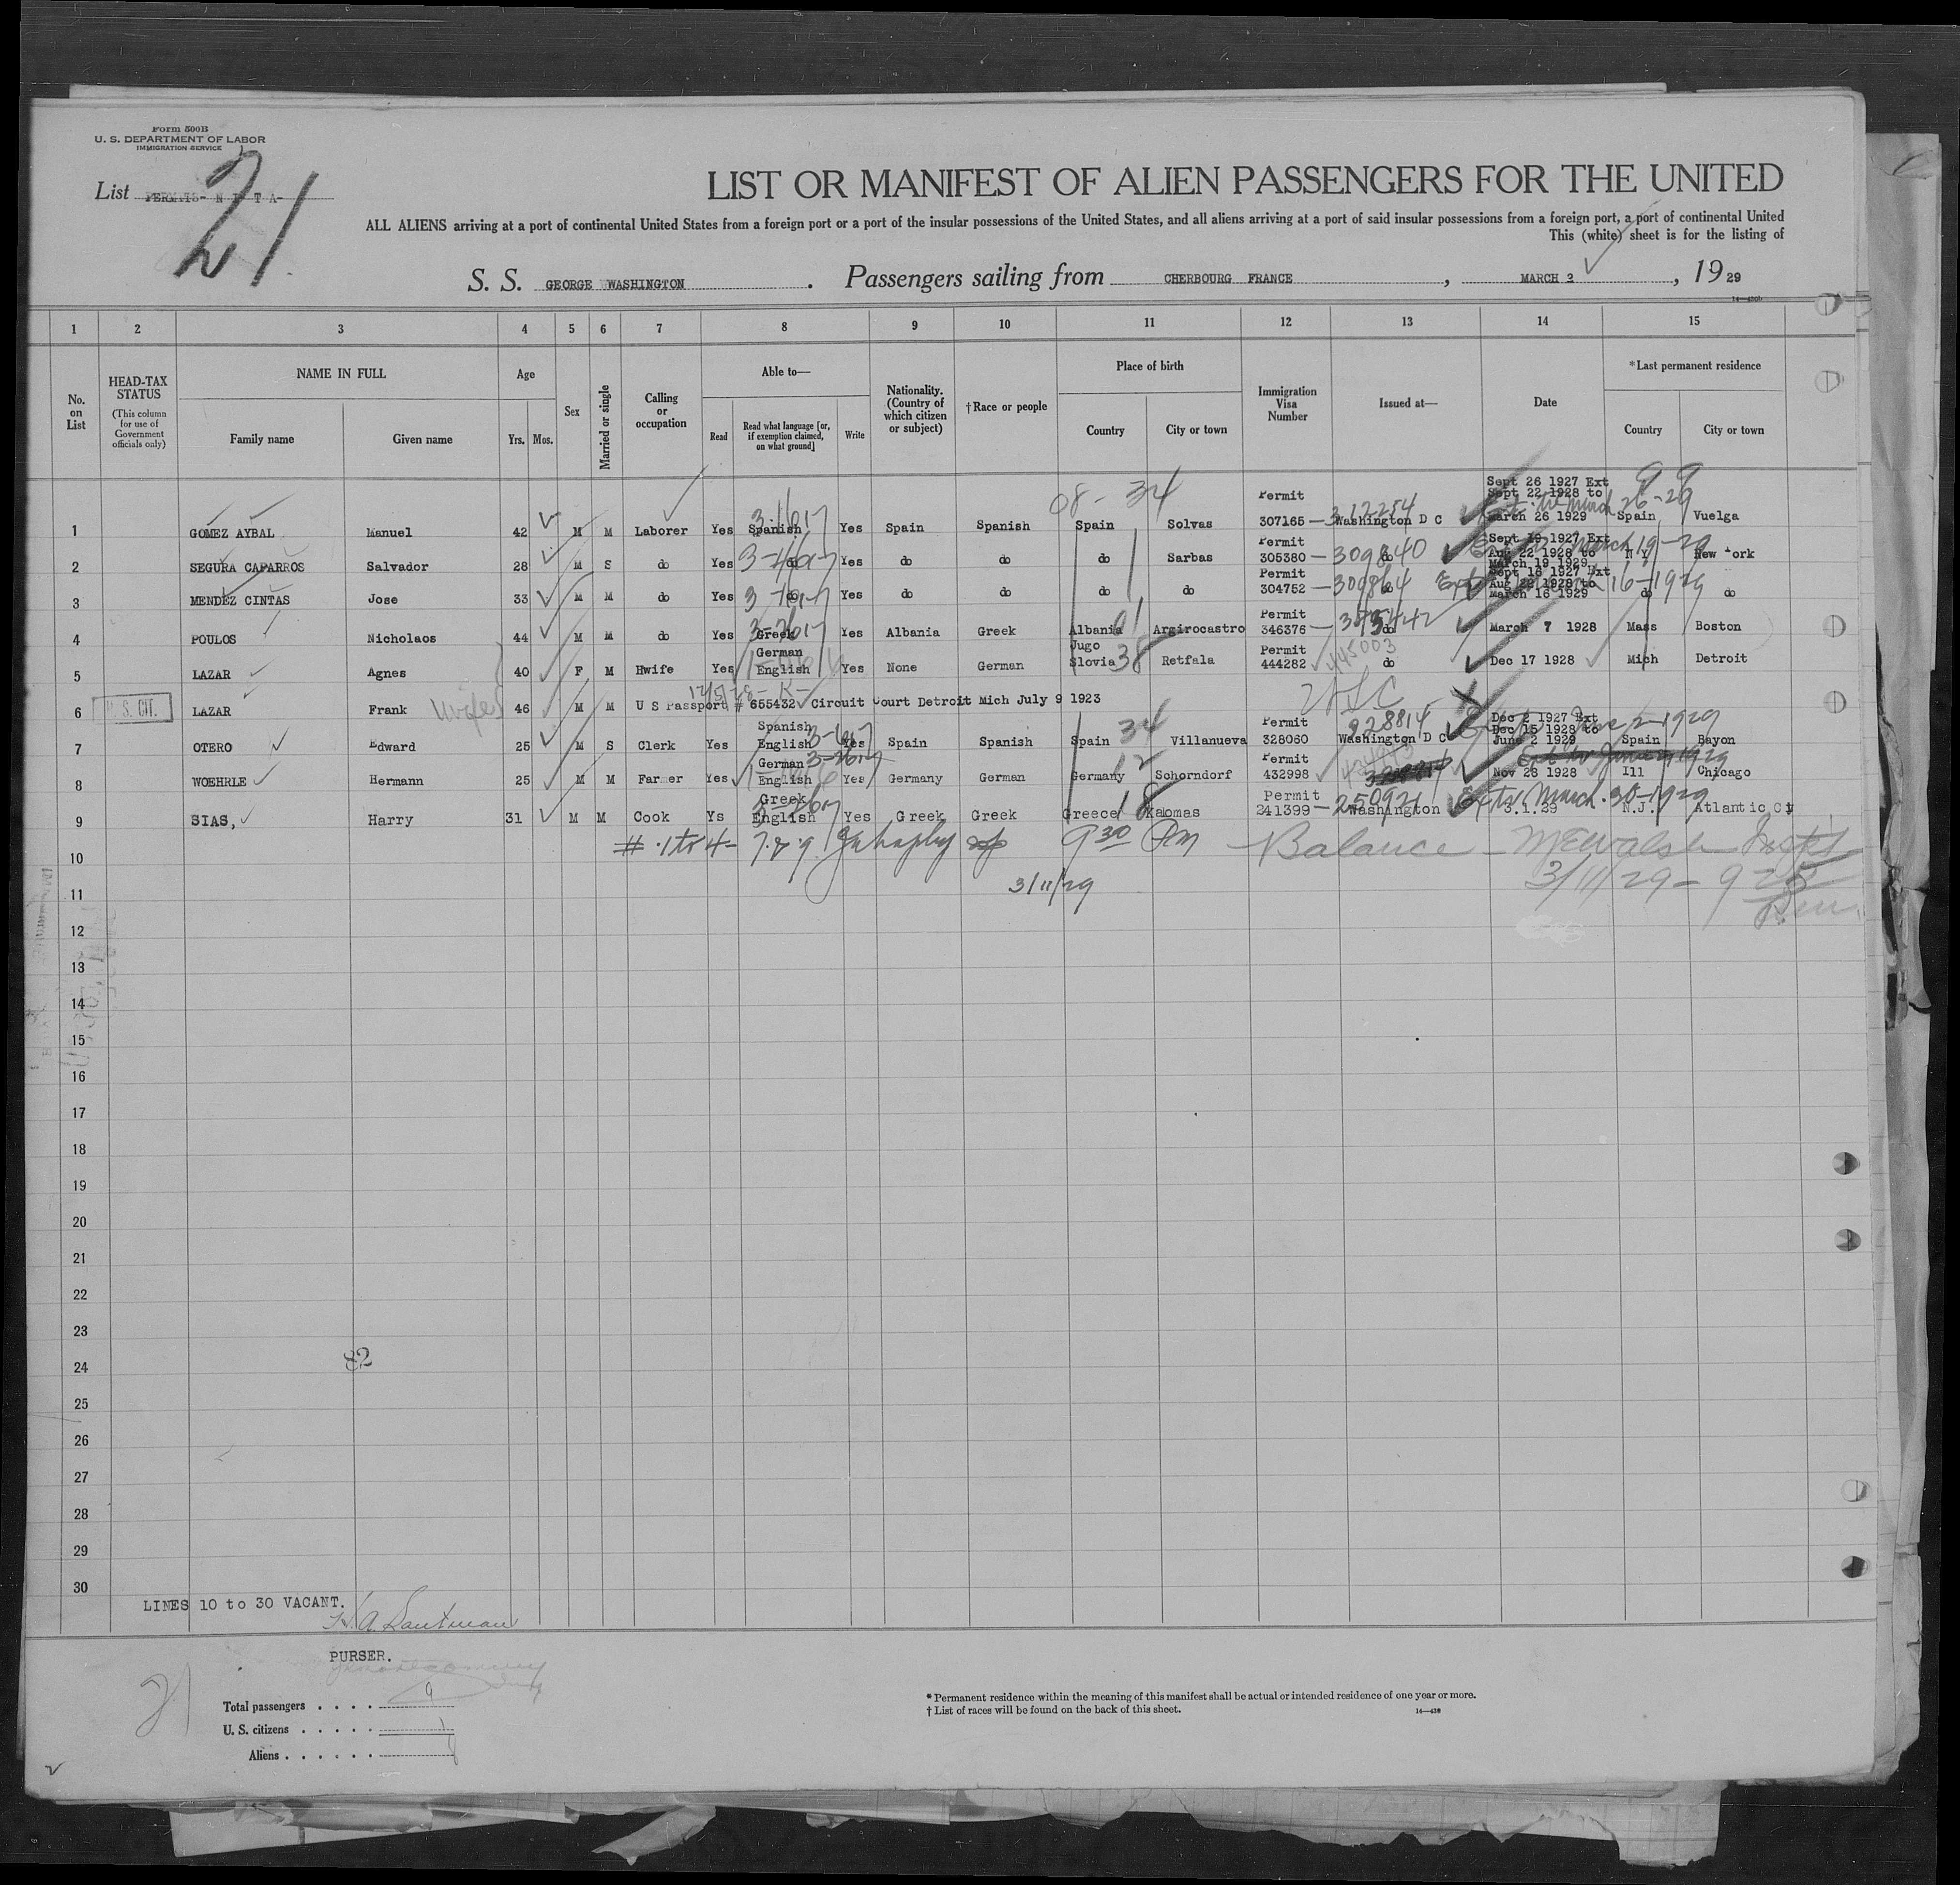 Form 500B
U. S. DEPARTMENT OF LABOR
IMMIGRATION SERVICE
List
21
LIST OR MANIFEST OF ALIEN PASSENGERS FOR THE UNITED
ALL ALIENS arriving at a port of continental United States from a foreign port or a port of the insular possessions of the United States, and all aliens arriving at a port of said insular possessions from a foreign port, a port of continental United
This (white) sheet is for the listing of
S. S. GEORGE WASHINGTON . Passengers sailing from CHERBOURG FRANCE , MARCH 2 , 1929
1 2 3 4 5 6 7 8 9 10 11 12 13 14 15
No. on List
HEAD-TAX STATUS (This column for use of Government officials only)
NAME IN FULL
Family name Given name
Age
Yrs. Mos.
Sex
Married or single
Calling or occupation
Able to—
Read Read what language [or, if exemption claimed, on what ground] Write
Nationality. (Country of which citizen or subject)
†Race or people
Place of birth
Country City or town
Immigration Visa Number
Issued at—
Date
*Last permanent residence
Country City or town
08 - 34 99
Permit Sept 26 1927 Ext
312254 Sept 22 1928 to
1 GOMEZ AYBAL Manuel 42 M M Laborer Yes Spanish Yes Spain Spanish Spain Solvas 307165 Washington D C March 26 1929 Spain Vuelga
Permit Sept 19 1927 Ext
309840 Aug 22 1928 to
2 SEGURA CAPARROS Salvador 28 M S do Yes do Yes do do do Sarbas 305380 do March 19 1929 N Y New York
Permit Sept 16 1927 Ext
309864 Aug 22 1928 to
3 MENDEZ CINTAS Jose 33 M M do Yes do Yes do do do do 304752 do March 16 1929 do do
Permit
4 POULOS Nicholaos 44 M M do Yes Greek Yes Albania Greek Albania 01 Argirocastro 346376 do March 7 1928 Mass Boston
German Jugo Permit 445003
5 LAZAR Agnes 40 F M Hwife Yes English Yes None German Slovia 38 Retfala 444282 do Dec 17 1928 Mich Detroit
U. S. CIT. 6 LAZAR Frank 46 M M U S Passport # 655432 Circuit Court Detroit Mich July 9 1923
Spanish 34 Permit 328814 Dec 2 1927 Ext
Dec 15 1928 to
7 OTERO Edward 25 M S Clerk Yes English Yes Spain Spanish Spain Villanueva 328060 Washington D C June 2 1929 Spain Bayon
German 12 Permit
8 WOEHRLE Hermann 25 M M Farmer Yes English Yes Germany German Germany Schorndorf 432998 Nov 28 1928 Ill Chicago
Greek Permit 250921 Ext to March 30-1929
9 SIAS, Harry 31 M M Cook Ys English Yes Greek Greek Greece 18 Kaomas 241399 Washington 3.1.29 N.J. Atlantic Cy
10 # 1 to 4 - 7.8.9. 9 30 Pm Balance - Inspt
11 3/11/29 3/11/29 - 9 25 Pm
12
13
14
15
16
17
18
19
20
21
22
23
24 82
25
26
27
28
29
30
LINES 10 to 30 VACANT.
PURSER.
21
Total passengers . . . . 9
U. S. citizens . . . . . 1
Aliens . . . . . . 8
* Permanent residence within the meaning of this manifest shall be actual or intended residence of one year or more.
† List of races will be found on the back of this sheet.